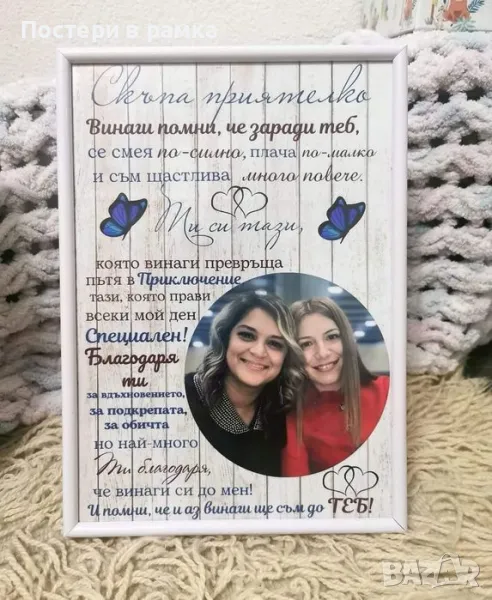 Постери в рамка
Скъпа приятелко
Винаги помни, че заради теб,
се смея по-силно, плача по-малко
и съм щастлива много повече.
Ти си тази,
която винаги превръща
пътя в Приключение
тази, която прави
всеки мой ден
Специален!
Благодаря
ти
за вдъхновението,
за подкрепата,
за обичта
но най-много
Ти благодаря,
че винаги си до мен!
И помни, че и аз винаги ще съм до ТЕБ!
BAZAR.bg